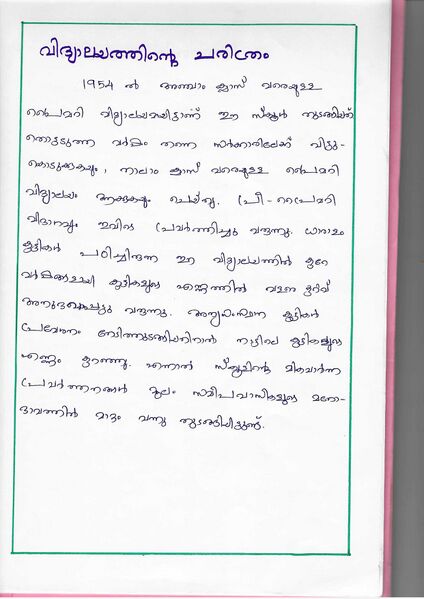 വിദ്യാലയത്തിന്റെ ചരിത്രം
1954 ൽ അഞ്ചാം ക്ലാസ് വരെയുള്ള
പ്രൈമറി വിദ്യാലയമായിട്ടാണ് ഈ സ്കൂൾ തുടങ്ങിയത്
തൊട്ടടുത്ത വർഷം തന്നെ സർക്കാരിലേക്ക് വിട്ടു-
കൊടുക്കുകയും, നാലാം ക്ലാസ് വരെയുള്ള പ്രൈമറി
വിദ്യാലയം ആക്കുകയും ചെയ്തു. പ്രീ-പ്രൈമറി
വിഭാഗവും ഇവിടെ പ്രവർത്തിച്ചു വരുന്നു. ധാരാളം
കുട്ടികൾ പഠിച്ചിരുന്ന ഈ വിദ്യാലയത്തിൽ കുറേ
വർഷങ്ങളായി കുട്ടികളുടെ എണ്ണത്തിൽ വളരെ കുറവ്
അനുഭവപ്പെട്ടു വരുന്നു. അന്യസംസ്ഥാന കുട്ടികൾ
പ്രവേശനം നേടിത്തുടങ്ങിയതിനാൽ നാട്ടിലെ കുട്ടികളുടെ
എണ്ണം കുറഞ്ഞു. എന്നാൽ സ്കൂളിന്റെ മികവാർന്ന
പ്രവർത്തനങ്ങൾ മൂലം സമീപവാസികളുടെ മനോ-
ഭാവത്തിൽ മാറ്റം വന്നു തുടങ്ങിയിട്ടുണ്ട്.